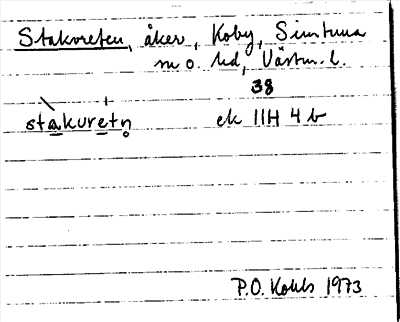 Stakvreten, åker, Koby, Simtuna
sn o. hd, Västm. l.
38
stakuretn ek 11H 4 b
P.O. Kohls 1973